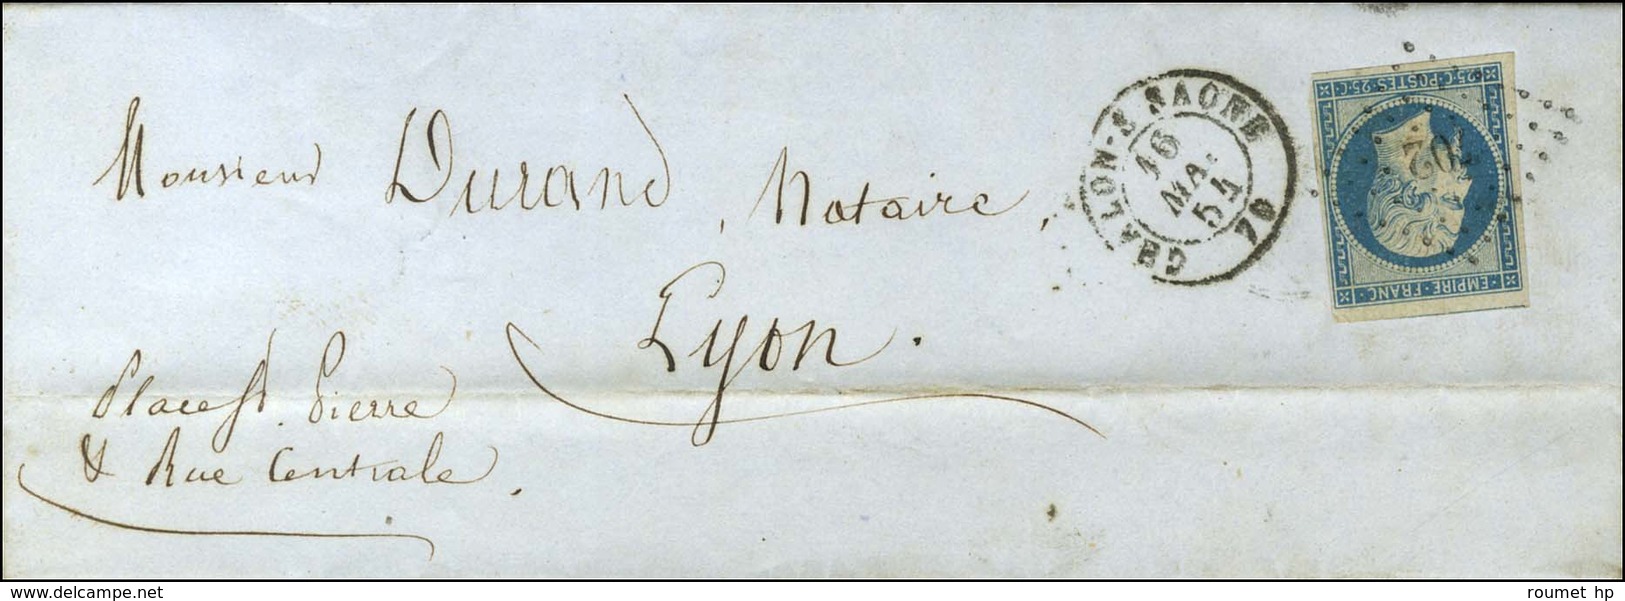 Monsieur Durand, Notaire,
Lyon.
Place St. Pierre
& Rue Centrale.
CHALON-S-SAONE
16
MAI
54
70
25·C·POSTES·25·C
EMPIRE·FRANC·
www.delcampe.net
roumet hp